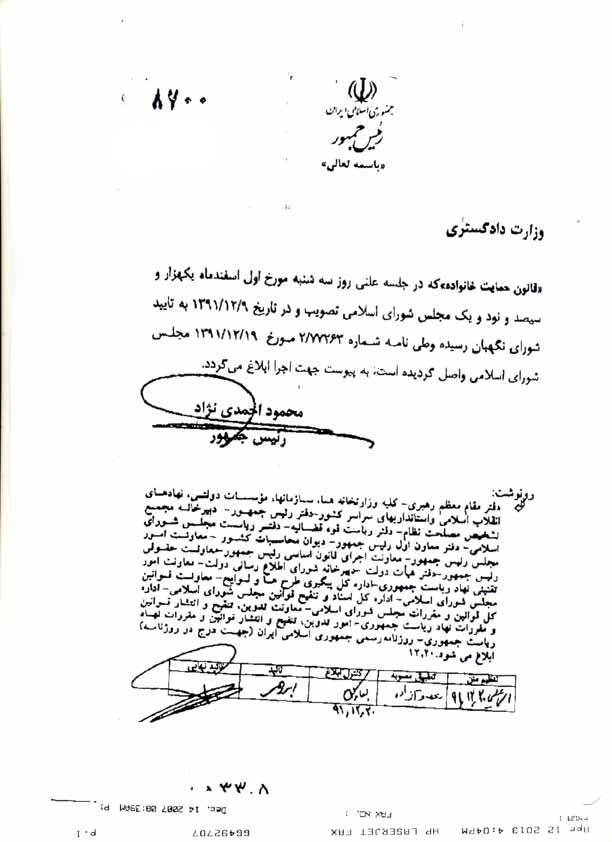 ۸۷۰۰
جمهوری اسلامی ایران
رئیس جمهور
«باسمه تعالی»
وزارت دادگستری
«قانون حمایت خانواده»که در جلسه علنی روز سه شنبه مورخ اول اسفندماه یکهزار و
سیصد و نود و یک مجلس شورای اسلامی تصویب و در تاریخ ۱۳۹۱/۱۲/۹ به تایید
شورای نگهبان رسیده وطی نامه شماره ۲/۷۷۲۶۳ مورخ ۱۳۹۱/۱۲/۱۹ مجلس
شورای اسلامی واصل گردیده است، به پیوست جهت اجرا ابلاغ می‌گردد.
محمود احمدی نژاد
رئیس جمهور
رونوشت:
دفتر مقام معظم رهبری- کلیه وزارتخانه هـا، سـازمانها، مؤسسـات دولتـی، نهادهـای
انقلاب اسلامی واستانداریهای سراسر کشور-دفتر رئیس جمهـور- دبیرخانـه مجمـع
تشخیص مصلحت نظام- دفتر ریاست قوه قضـائیه- دفتـر ریاسـت مجلـس شـورای
اسلامی- دفتر معاون اول رئیس جمهور- دیوان محاسبـات کشـور - معاونـت امـور
مجلس رئیس جمهور- معاونت اجرای قانون اساسی رئیس جمهور-معاونـت حقـوقی
رئیس جمهور-دفتر هیأت دولت -دبیرخانه شورای اطلاع رسانی دولت- معاونت امور
تقنینی نهاد ریاست جمهوری-اداره کل پیگیری طرح هـا و لـوایح- معاونـت قـوانین
مجلس شورای اسلامی- اداره کل اسناد و تنقیح قوانین مجلس شورای اسلامی- اداره
کل قوانین و مقررات مجلس شورای اسلامی- معاونت تدوین، تنقیح و انتشار قـوانین
و مقررات نهاد ریاست جمهوری- امور تدوین، تنقیح و انتشار قوانین و مقررات نهـاد
ریاست جمهوری- روزنامه رسمی جمهوری اسلامی ایران (جهـت درج در روزنامـه)
ابلاغ می شود.۱۲،۲۰
تنظیم متن تطبیق مصوبه کنترل ابلاغ تائید تائید نهائی
۹۱،۱۲،۲۰
۹۱،۱۲،۲۰
۰۰۳۳۰۸
Dec. 14 2007 08:39AM P1 FAX NO. :
p.1 66492707 HP LASERJET FAX Apr 12 2013 4:04PM